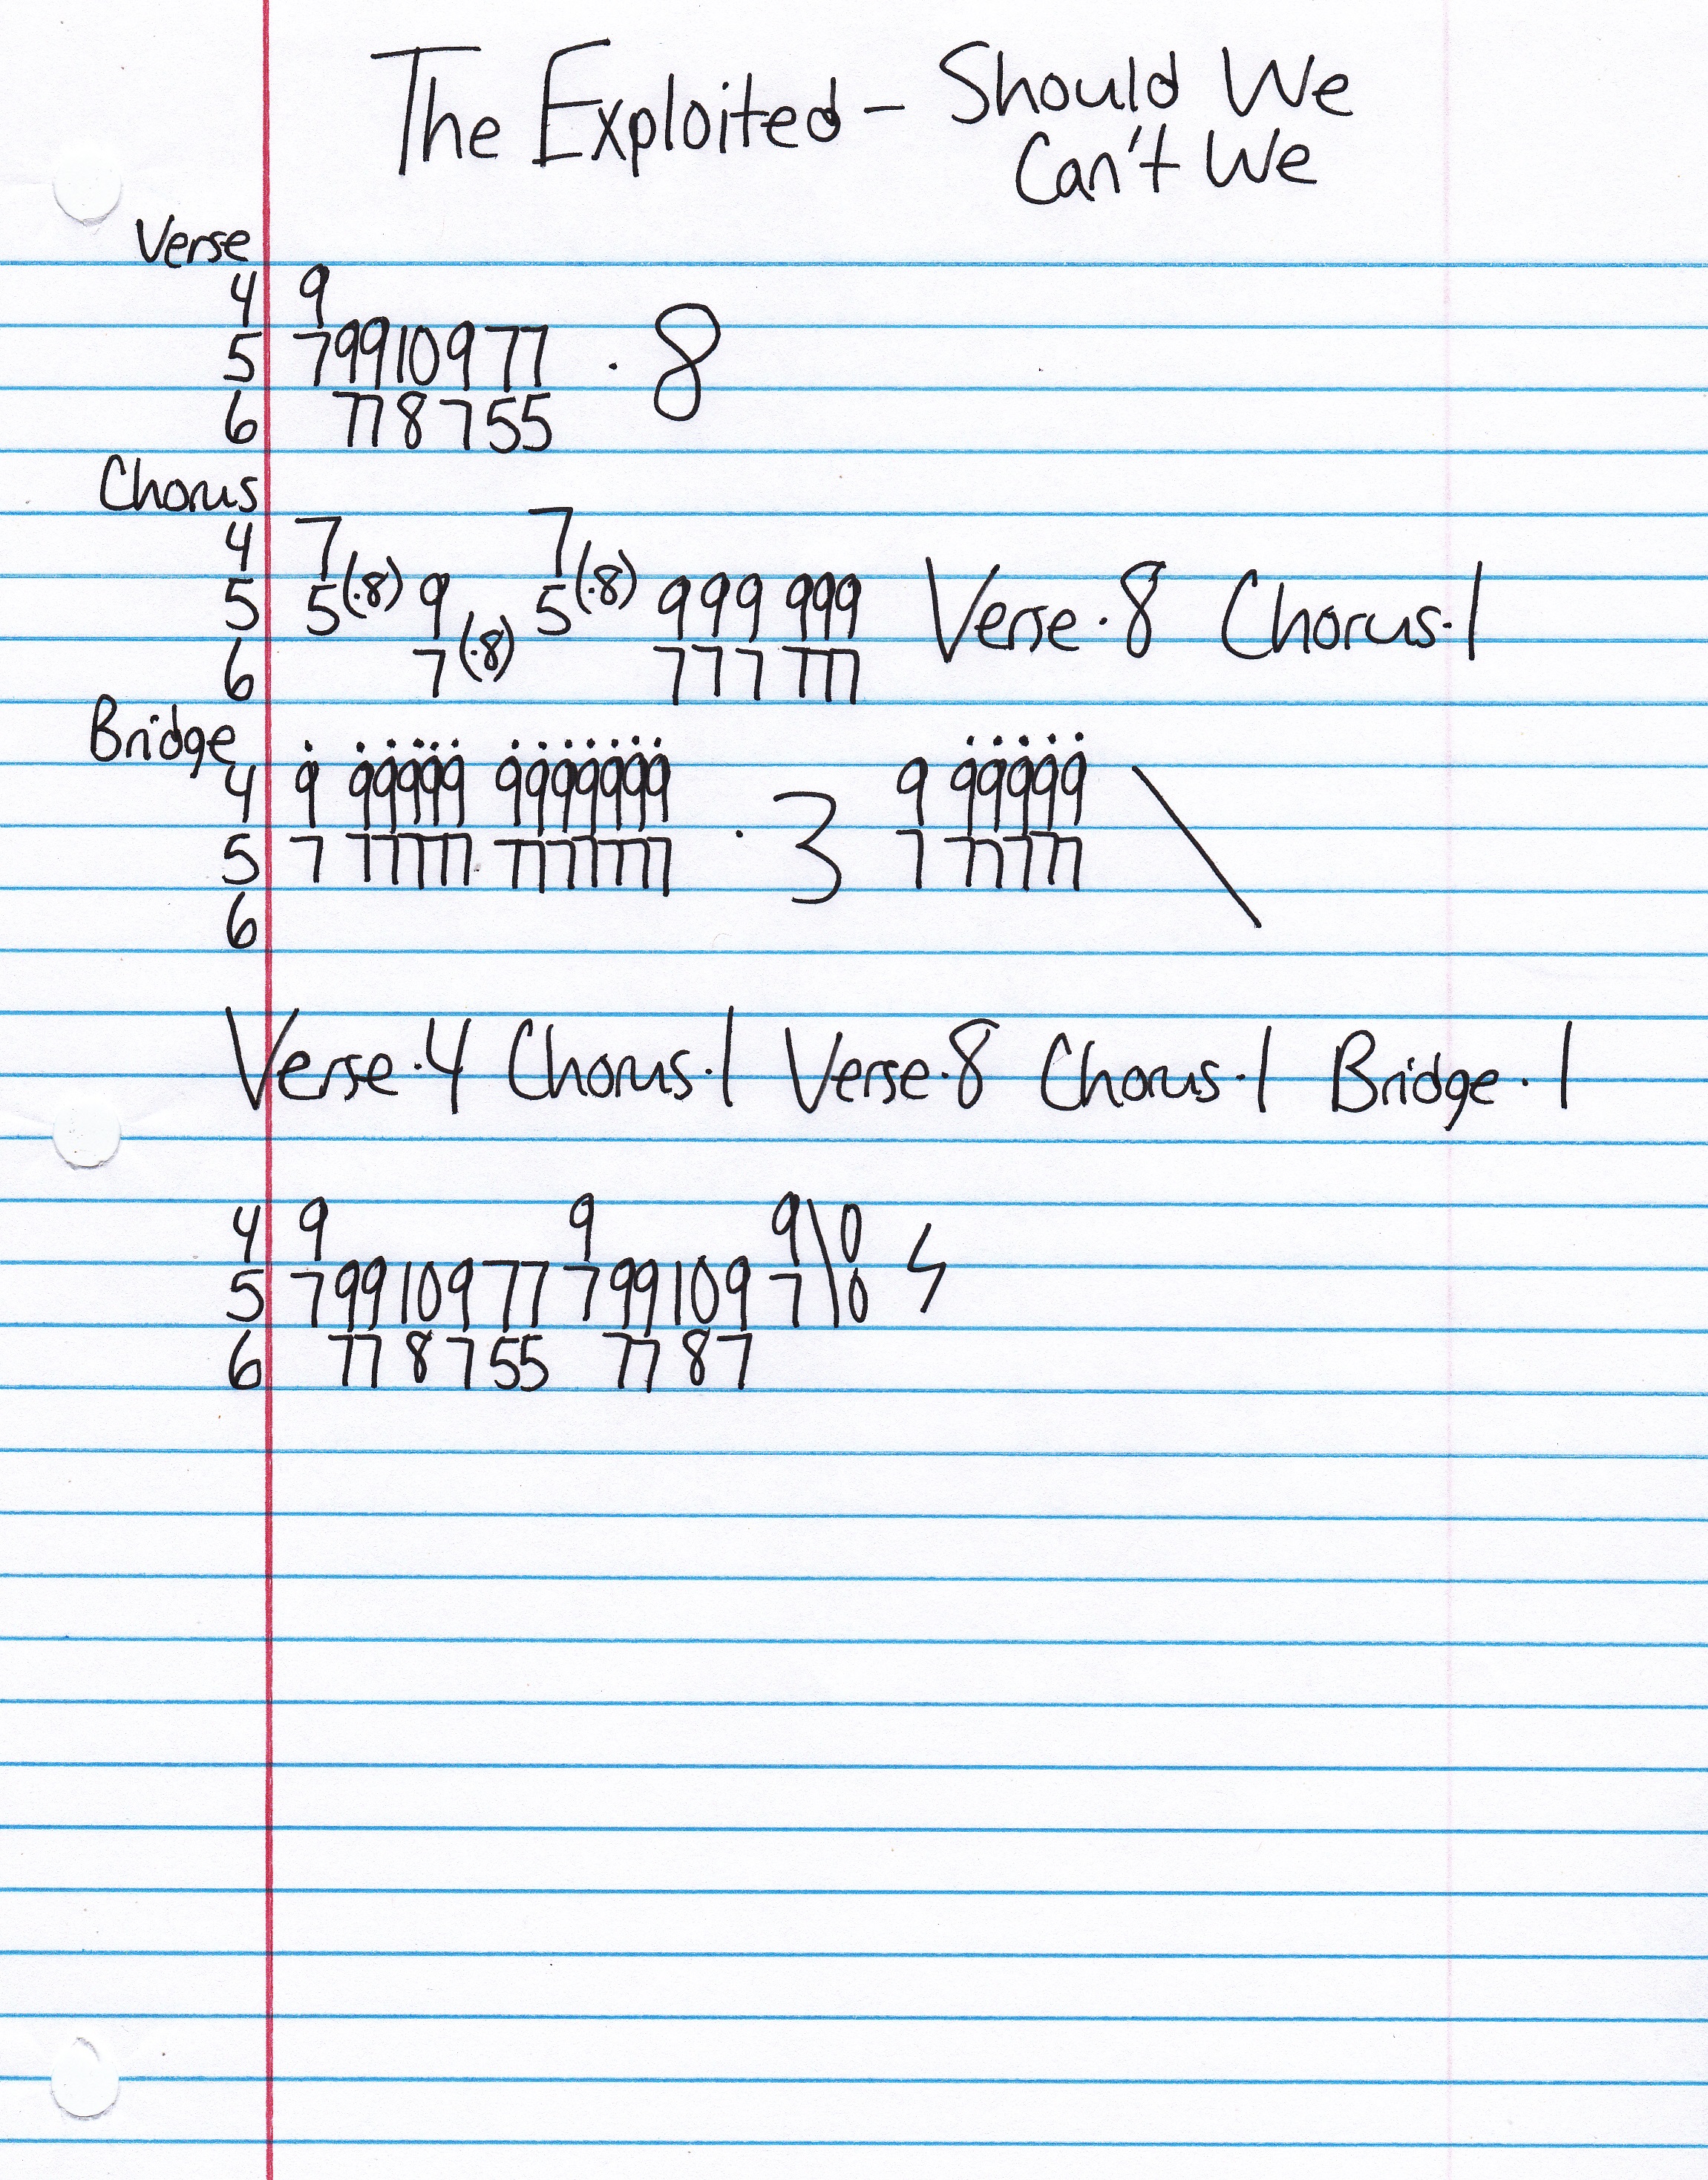 The Exploited - Should We
Can't We
Verse
4 9
5 7 9 9 10 9 7 7 · 8
6 7 7 8 7 5 5
Chorus
4 7 7
5 5(·8) 9 5(·8) 9 9 9 9 9 9 Verse·8 Chorus·1
6 7 (·8) 7 7 7 7 7 7
Bridge
4 9 99999 9999999 · 3 9 99999 \
5 7 77777 7777777 7 77777
6
Verse·4 Chorus·1 Verse·8 Chorus·1 Bridge·1
4 9 9 9 \ 0
5 7 9 9 10 9 7 7 7 9 9 10 9 7 \ 0
6 7 7 8 7 5 5 7 7 8 7